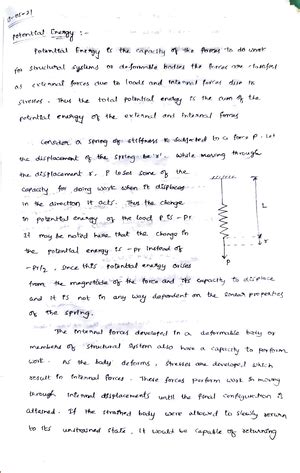 Potential Energy :-
Potential Energy is the capacity of the forces to do work
for structural systems or deformable bodies the forces are classified
as external forces due to loads and internal forces due to
stresses. Thus the total potential energy is the sum of the
potential energy of the external and internal forces
Consider a spring of stiffness is subjected to a force P. Let
the displacement of the spring be 'r'. While moving through
the displacement r, P loses some of the
capacity for doing work when it displaces
in the direction it acts. Thus the change
in potential energy of the load P is -Pr
It may be noted here that the change in
the potential energy is -Pr instead of
-Pr/2, since this potential energy arises
from the magnitude of the force and its capacity to displace
and it is not in any way dependent on the properties
of the spring.
L
r
P
The internal forces developed in a deformable body or
members of structural system also have a capacity to perform
work. As the body deforms, stresses are developed which
result in internal forces. These forces perform work in moving
through internal displacements until the final configuration is
attained. If the strained body were allowed to slowly return
to its unstrained state, it would be capable of returning